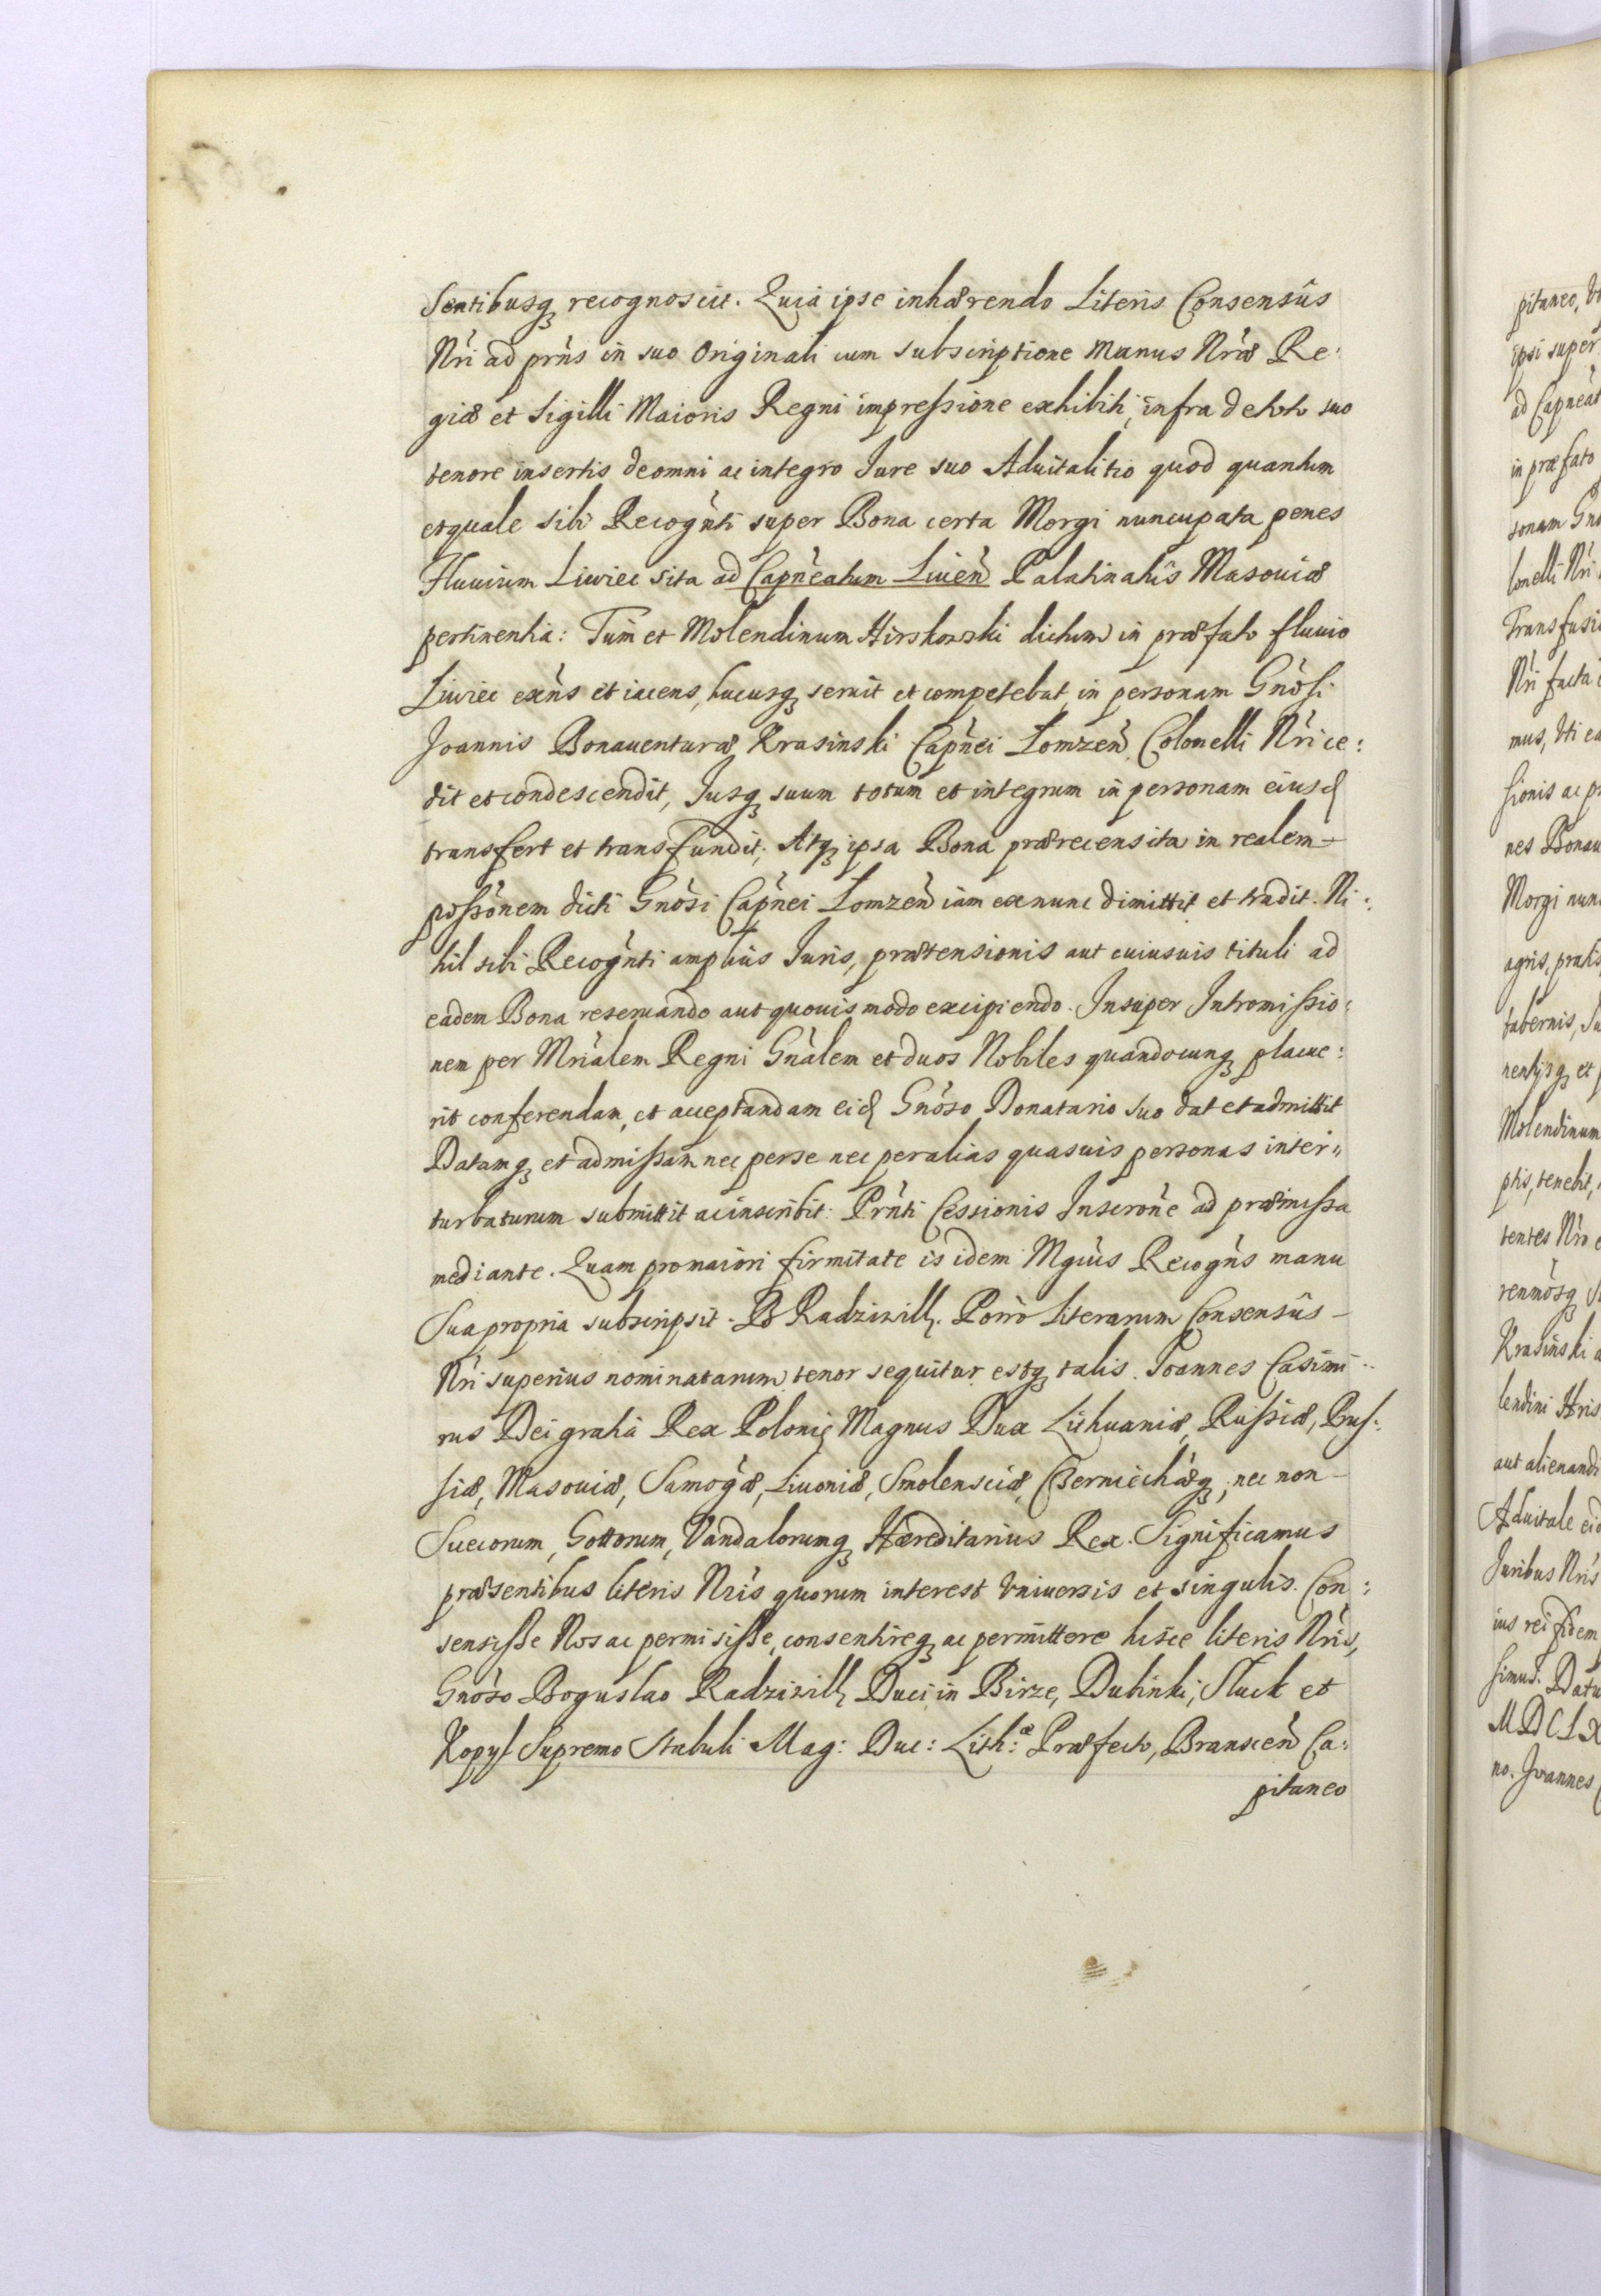 Sentibusq recognoscit. Quia ipse inhærendo Literis Consensûs
Nri ad prns in suo Originali cum subscriptione manus Nræ Re:
giæ et Sigilli Maioris Regni impressione exhibiti, infra de toto suo
tenore insertis de omni ac integro Jure suo Aduitalitio quod quantum
et quale sibi Recognti super Bona certa Morgi nuncupata penes
Fluuium Liwiec sita ad Capneatum Liuen Palatinatûs Masouiæ
pertinentia: Tum et Molendinum Hirskowski dictum in præfato fluuio
Liwiec exns et iacens, hucusq seruit et competebat, in personam Gnosi
Joannis Bonauenturæ Krasinski Capnei Lomzen Colonelli Nri ce:
dit et condescendit, Jusq suum totum et integrum in personam eiusd
transfert et transfundit; Atq ipsa Bona prærecensita in realem
possonem dicti Gnosi Capnei Lomzen iam ex nunc dimittit et tradit. Ni:
hil sibi Recognti amplius Juris, prætensionis aut cuiusuis tituli ad
eadem Bona reseruando aut quouis modo excipiendo. Insuper Intromissio:
nem per Mrialem Regni Gnalem et duos Nobiles quandocunq placue:
rit conferendam, et acceptandam eid Gnoso Donatario suo dat et admittit
Datamq et admissam nec per se nec per alias quasuis personas inter:
turbaturum submittit ac inscribit: Prnti Cessionis Inscrone ad præmissa
mediante. Quam pro maiori firmitate is idem Mgcus Recogns manu
Sua propria subscripsit. B Radziwill. Porro Literarum Consensûs
Nri superius nominatarum tenor sequitur estq talis. Joannes Casimi:
rus Dei gratia Rex Poloniæ Magnus Dux Lithuaniæ, Russiæ, Prus:
siæ, Masouiæ, Samogæ, Liuoniæ, Smolensciæ, Czerniechæq; nec non
Suecorum, Gottorum, Vandalorumq Hæreditarius Rex. Significamus
præsentibus literis Nris quorum interest vniuersis et singulis. Con:
sensisse Nos ac permisisse, consentireq ac permittere hisce literis Nris,
Gnoso Boguslao Radziwill Duci in Birze, Dubinki, Sluck et
Kopyl Supremo Stabuli Mag: Duc: Lith:æ Præfecto, Branscen Ca:
pitaneo